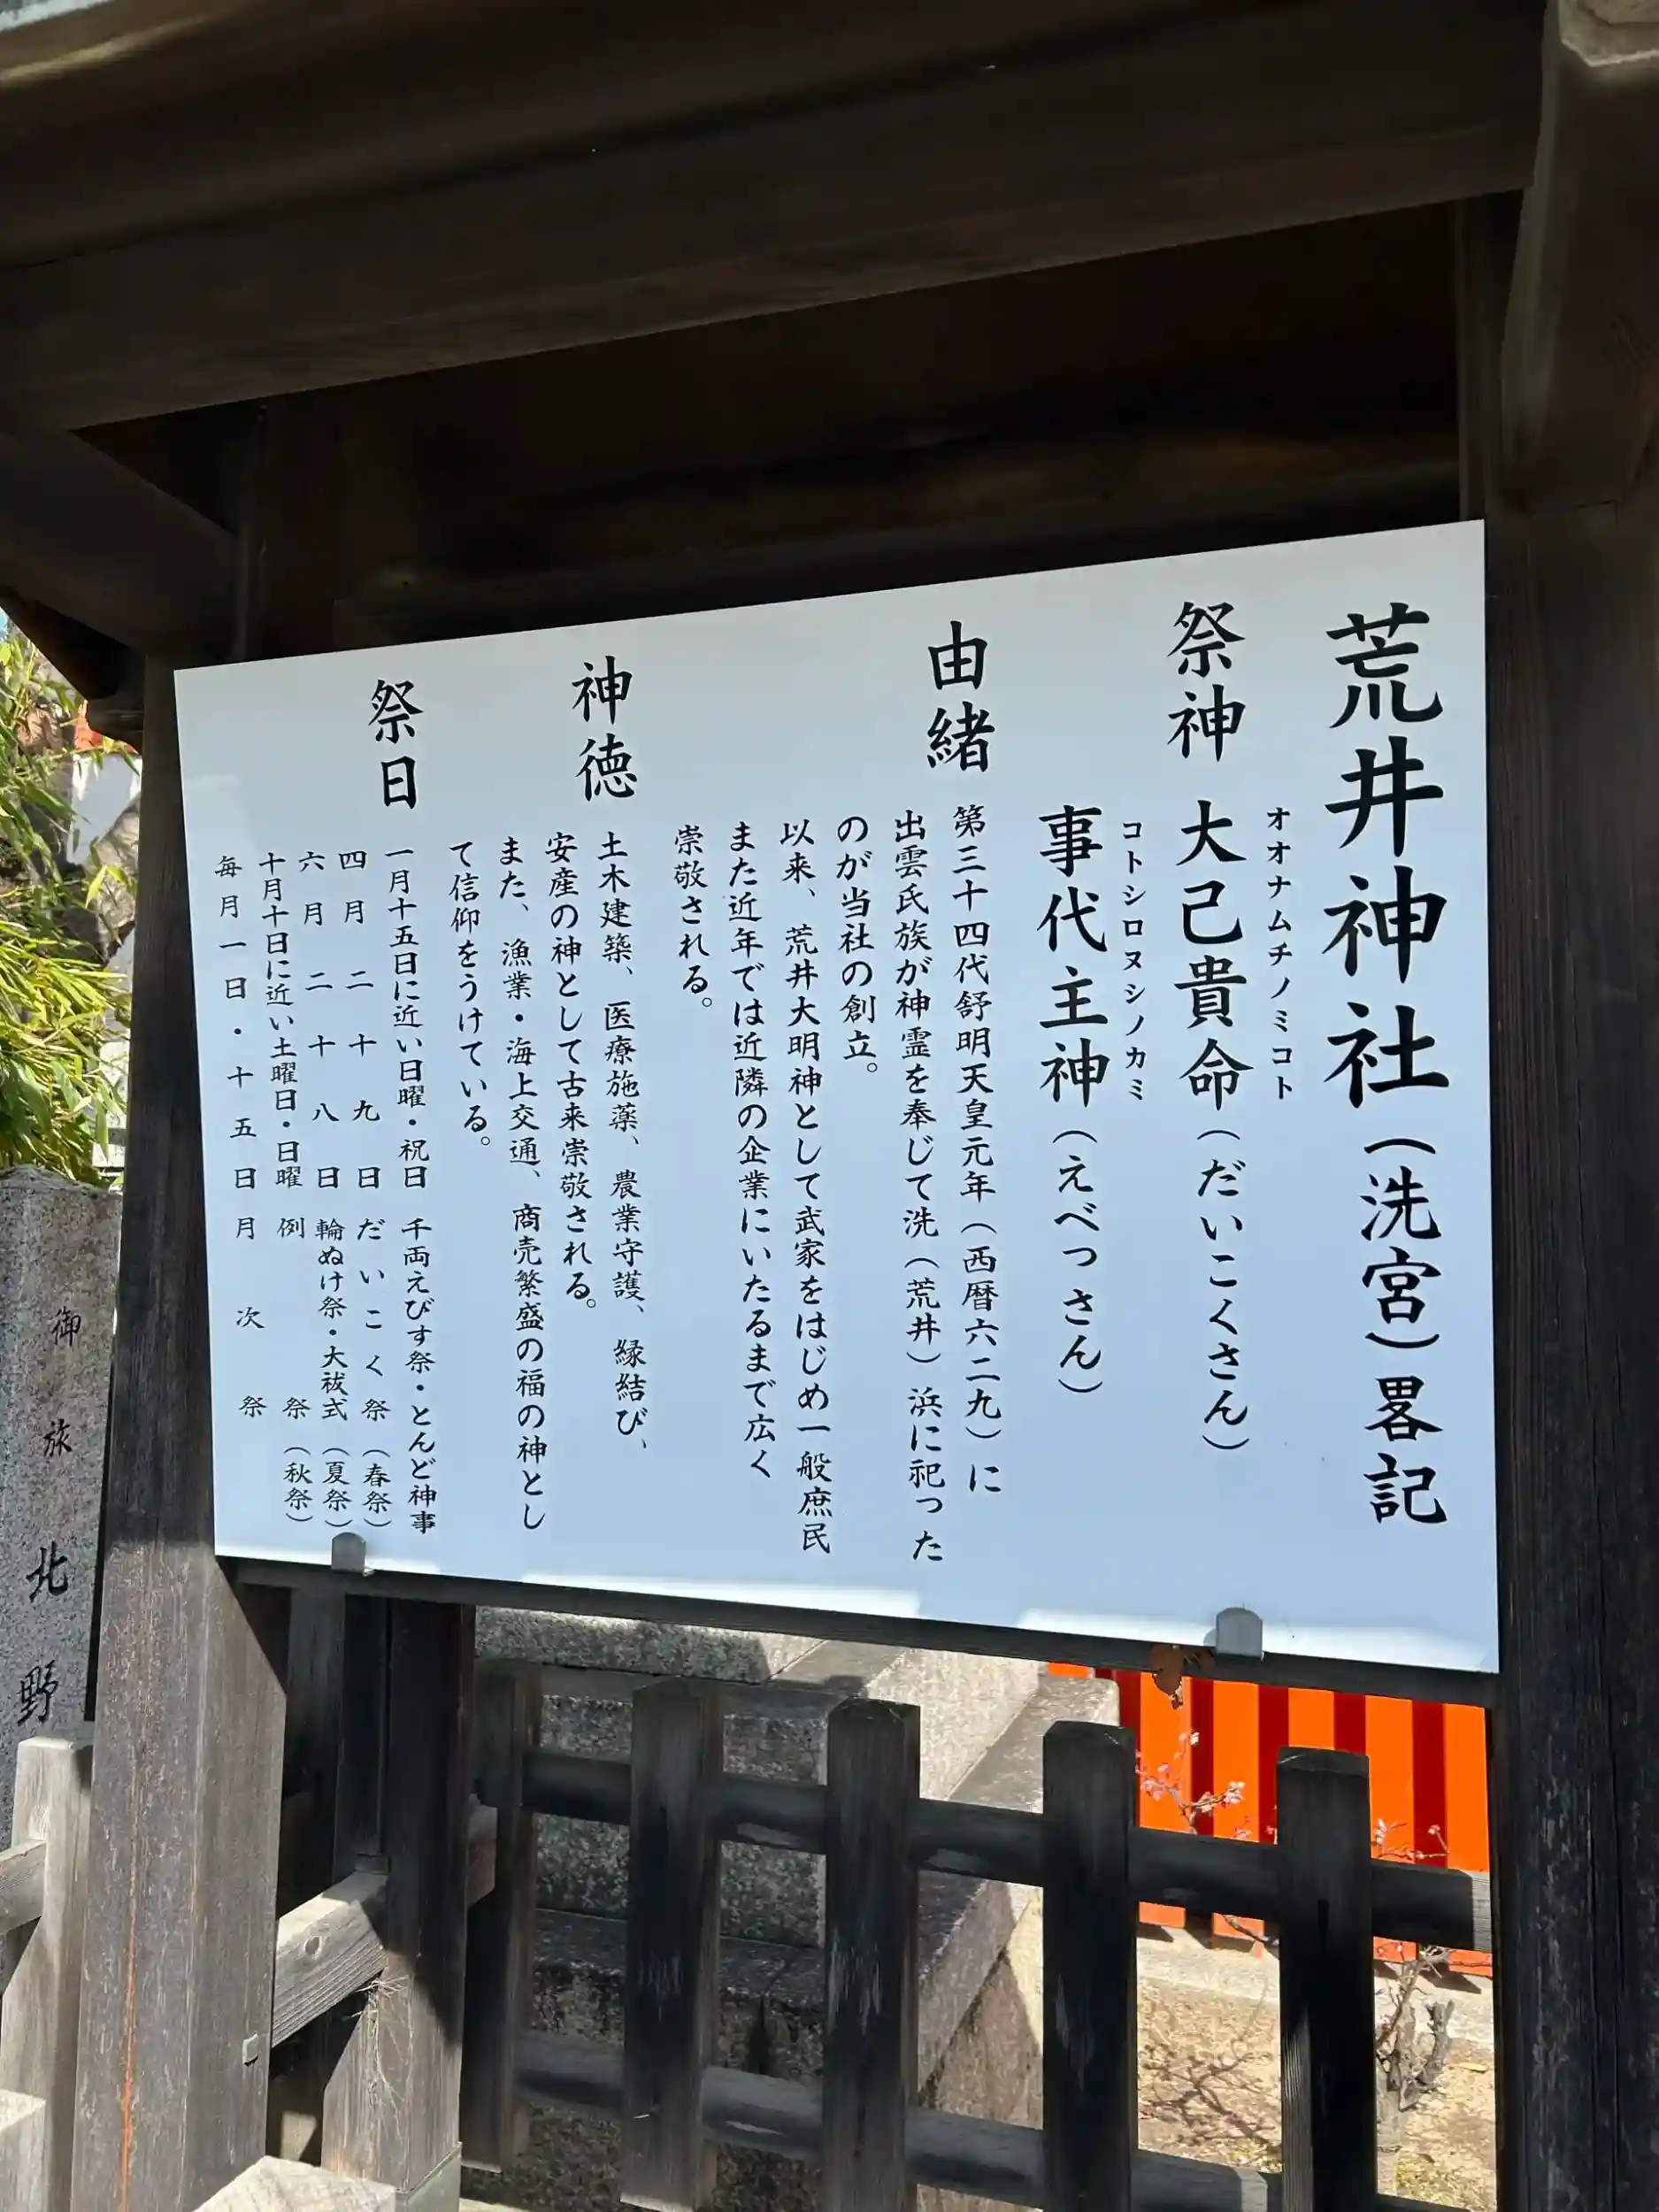 荒井神社（洗宮）畧記
祭神
オオナムチノミコト
大己貴命（だいこくさん）
コトシロヌシノカミ
事代主神（えべっさん）
由緒
第三十四代舒明天皇元年（西暦六二九）に
出雲氏族が神霊を奉じて洗（荒井）浜に祀った
のが当社の創立。
以来、荒井大明神として武家をはじめ一般庶民
また近年では近隣の企業にいたるまで広く
崇敬される。
神徳
土木建築、医療施薬、農業守護、縁結び、
安産の神として古来崇敬される。
また、漁業・海上交通、商売繁盛の福の神とし
て信仰をうけている。
祭日
一月十五日に近い日曜・祝日 千両えびす祭・とんど神事
四月二十九日 だいこく祭（春祭）
六月二十八日 輪ぬけ祭・大祓式（夏祭）
十月十日に近い土曜日・日曜 例祭（秋祭）
毎月一日・十五日 月次祭
御旅
北野